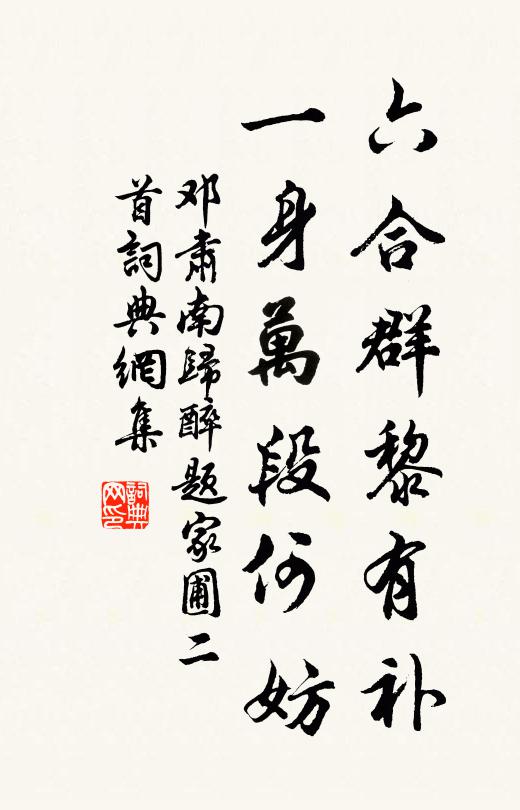 六合群黎有补
一身萬段何妨
邓肅南歸醉题家圃二
首詞典網集
詞典
网印